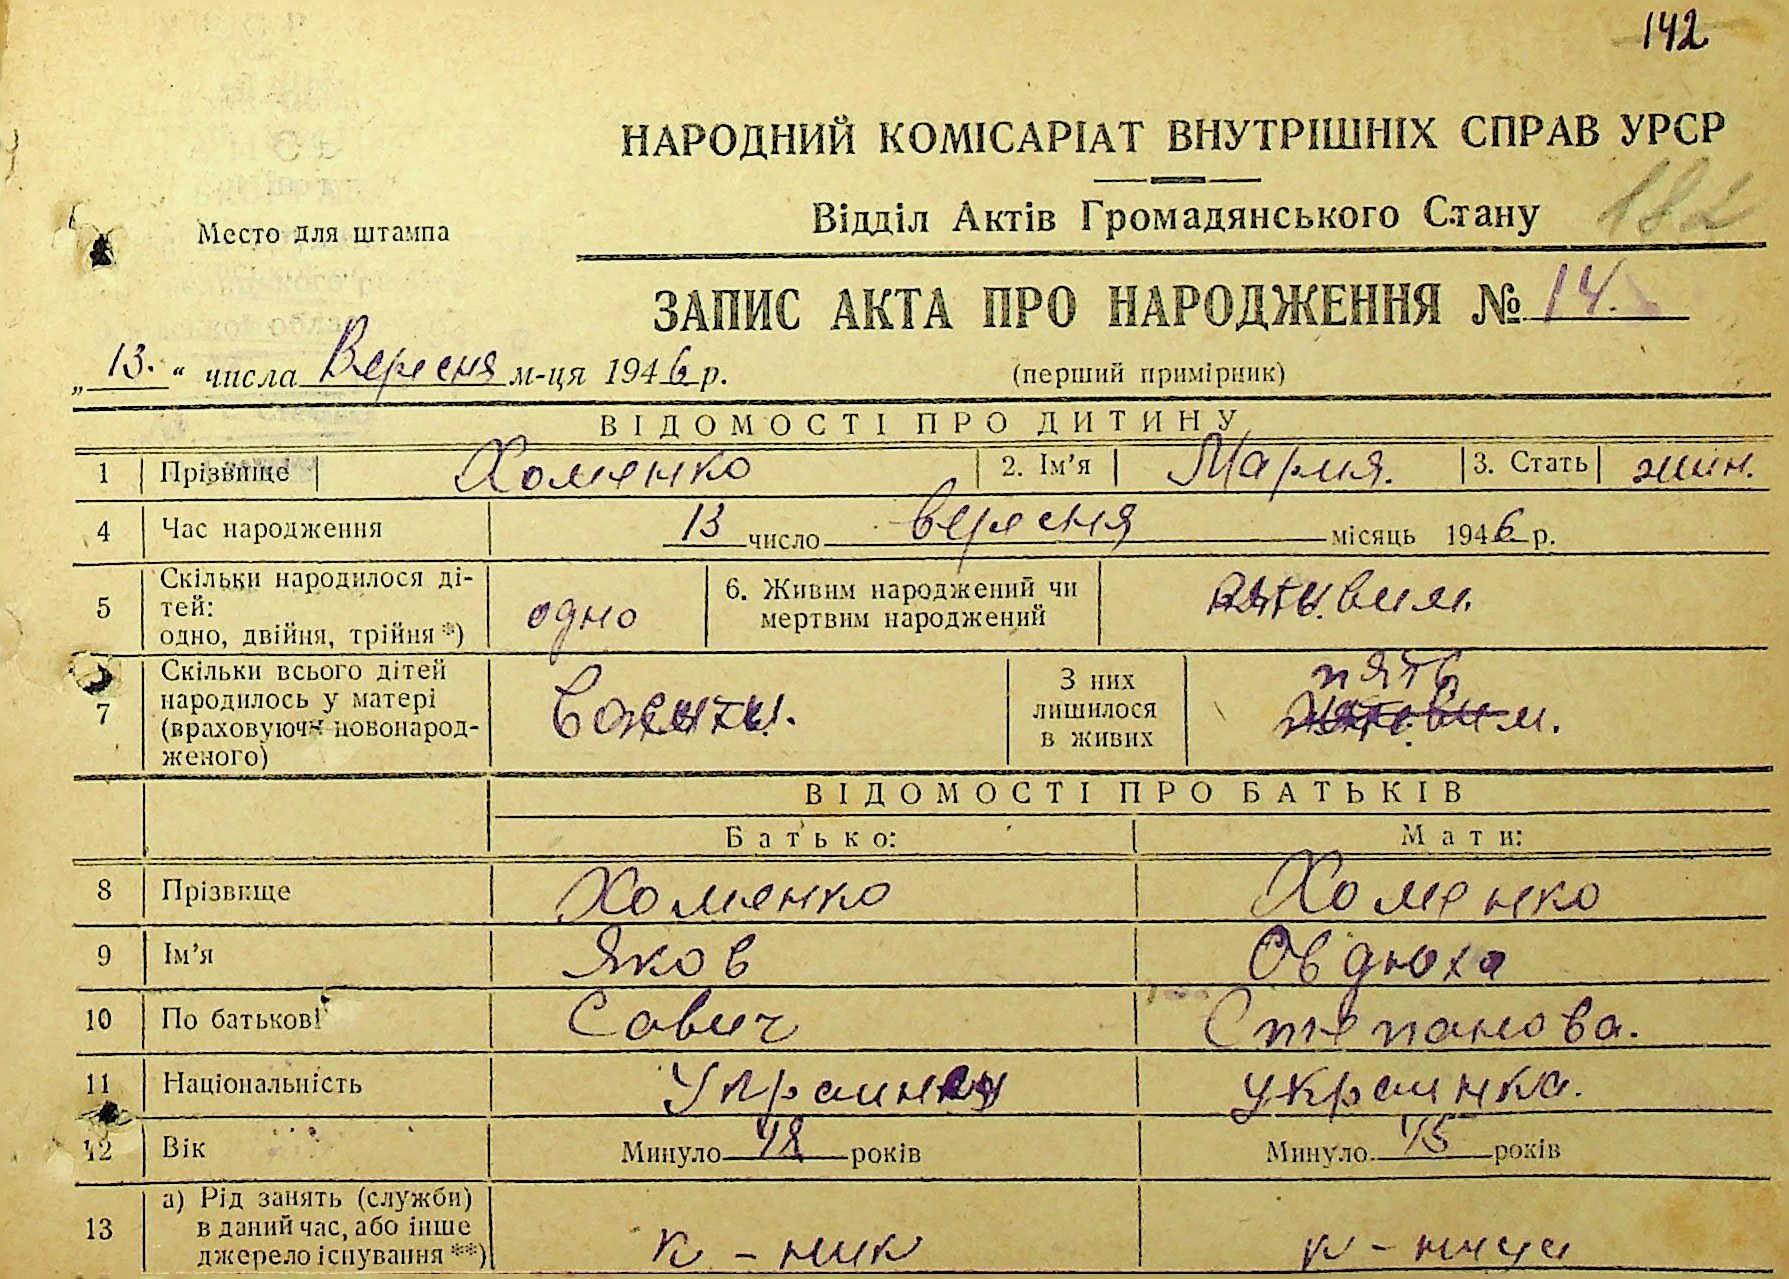 142
НАРОДНИЙ КОМІСАРІАТ ВНУТРІШНІХ СПРАВ УРСР
Відділ Актів Громадянського Стану 182
Место для штампа
ЗАПИС АКТА ПРО НАРОДЖЕННЯ № 14.
„13.“ числа Вересня м-ця 1946 р. (перший примірник)
ВІДОМОСТІ ПРО ДИТИНУ
1 Прізвище Хоменко 2. Ім'я Мария. 3. Стать жин.
4 Час народження 13 число вересня місяць 1946 р.
5 Скільки народилося ді-
тей:
одно, двійня, трійня *) одно 6. Живим народжений чи
мертвим народжений живим.
7 Скільки всього дітей
народилось у матері
(враховуючи новонарод-
женого)
З них
лишилося
в живих
пять
ВІДОМОСТІ ПРО БАТЬКІВ
Батько: Мати:
8 Прізвище Хоменко Хоменко
9 Ім'я Яков Овдюха
10 По батькові Савич Степанова.
11 Національність Украинец украинка.
12 Вік Минуло 48 років Минуло 45 років
13 а) Рід занять (служби)
в даний час, або інше
джерело існування **) к-ник к-ниця